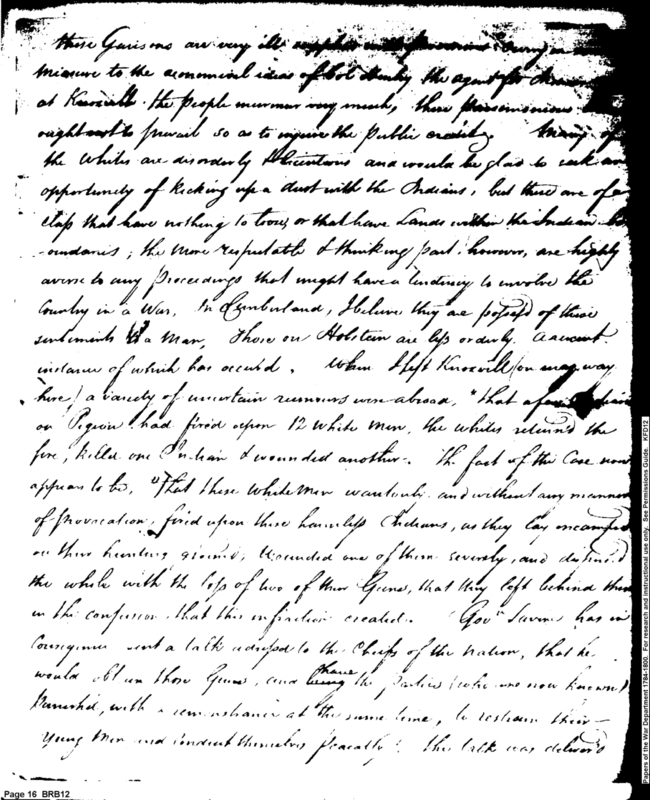 these Garisons are very ill supplied with provisions owing in
measure to the oeconomical ideas of Col Henley the agent for
at Knoxville. the people murmur very much, these parsimonious
ought not to prevail so as to injure the public credit. Many of
the Whites are disorderly & licentious and would be glad to seek an
opportunity of kicking up a dust with the Indians, but these are of a
class that have nothing to loose, or that have Lands within the Indian bo
-oundaries; the more respectable & thinking part, however, are highly
averse to any proceedings that might have a tendency to involve the
Country in a War. In Cumberland, I believe they are possess'd of these
sentiments to a Man, Those on Holstein are less orderly. A recent
instance of which has occured. When I left Knoxvill (on my way
here) a variety of uncertain rumours were abroad, "that a few Indians
on Pigeon had fired upon 12 White Men, the whites returned the
fire, killed one Indian & wounded another". The fact of the Case now
appears to be, "That these White Men wantonly and without any manner
of provocation, fired upon these harmless Indians, as they lay encamped
on their hunting ground, Wounded one of them severely, and
the whole with the loss of two of their Guns, that they left behind them
in the confusion that this infraction created. Govr Sevier has in
Consequence sent a talk adress'd to the Chiefs of the Nation, that he
would obtain those Guns, and have being the parties (who are now known)
Punished, with a remonstrance at the same time, to restrain their
Young Men and conduct themselves peaceably". This talk was deliver'd
Page 16 BRB12
Papers of the War Department 1784-1800. For research and instructional use only. See Permissions Guide. KFD12